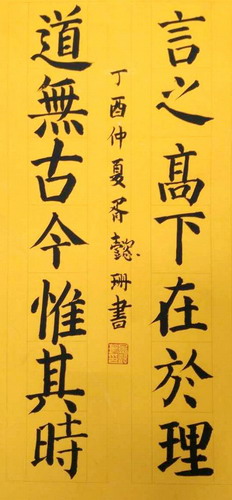 言之高下在於理
道無古今惟其時
丁酉仲夏胥懿珊書